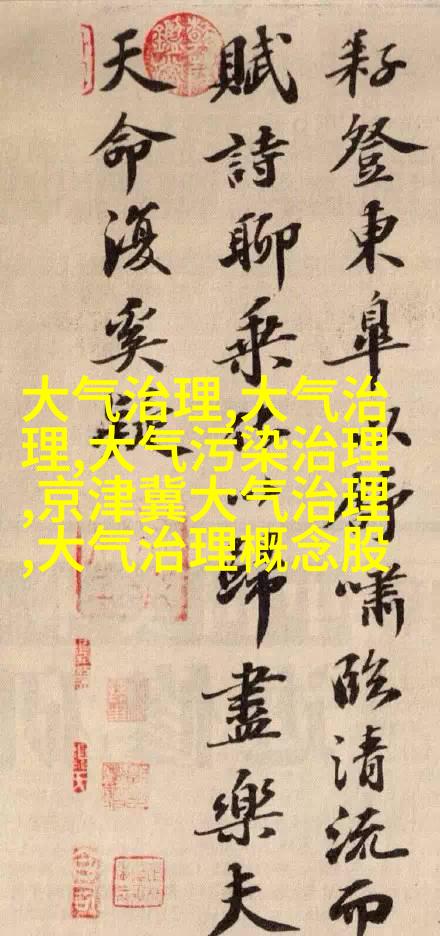 耔登東皐以舒嘯臨清流而
賦詩聊乘化以歸盡樂夫
天命復奚疑
大气治理,大气治
理,大气污染治理
,京津冀大气治理
,大气治理概念股